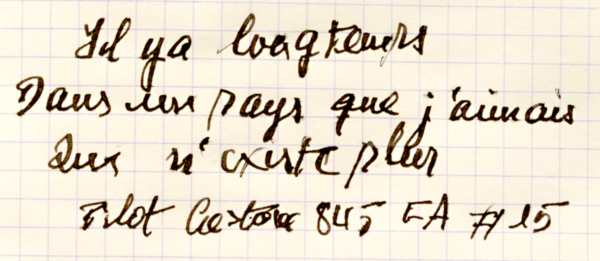 Il y a longtemps
Dans un pays que j'aimais
Qui n'existe plus
Pilot Custom 845 FA # 15